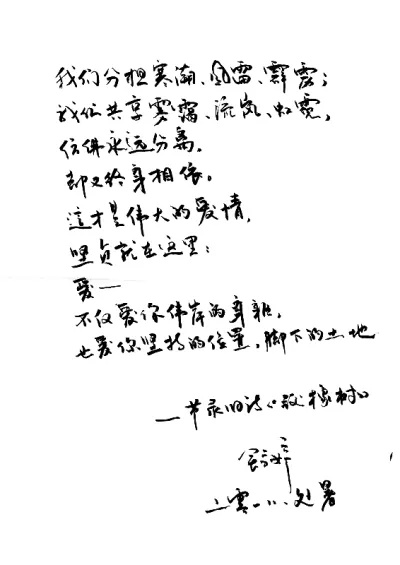 我们分担寒潮、风雷、霹雳；
我们共享雾霭、流岚、虹霓，
仿佛永远分离，
却又终身相依。
这才是伟大的爱情，
坚贞就在这里：
爱——
不仅爱你伟岸的身躯，
也爱你坚持的位置，脚下的土地
——节录旧诗《致橡树》
舒婷
二零一八.处暑